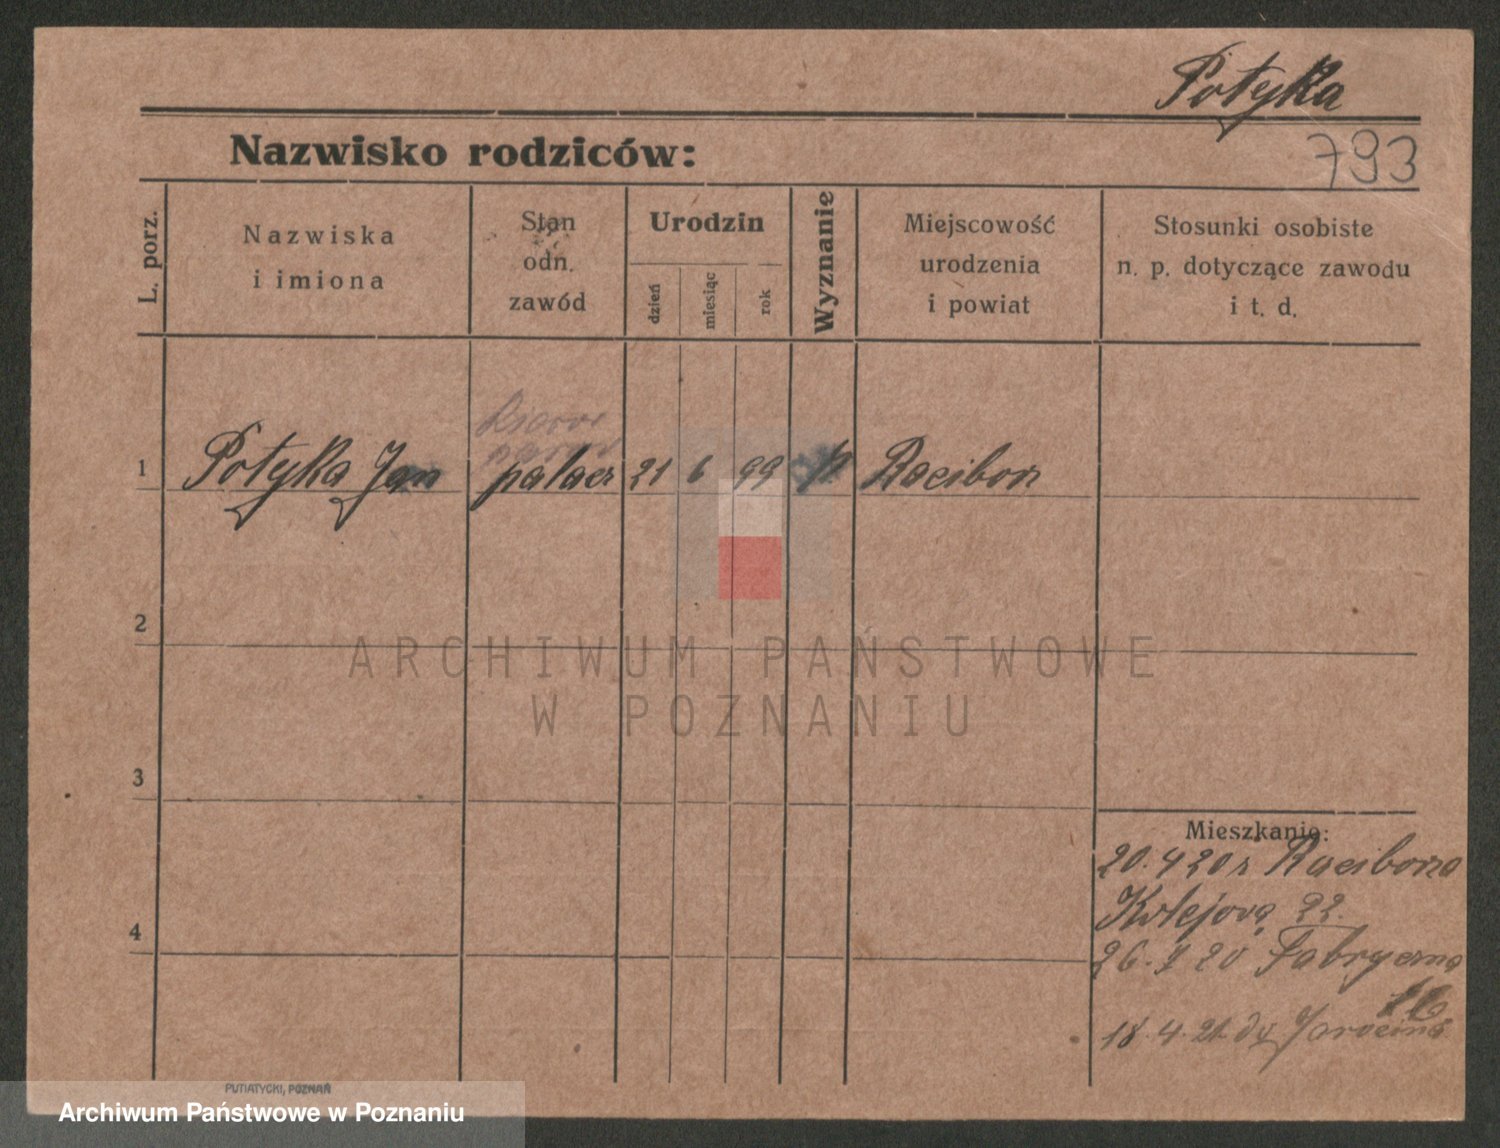 Potyka
793
Nazwisko rodziców:
L. porz.
Nazwiska
i imiona
Stan
odn.
zawód
Urodzin
dzień
miesiąc
rok
Wyznanie
Miejscowość
urodzenia
i powiat
Stosunki osobiste
n. p. dotyczące zawodu
i t. d.
1 Potyka Jan palacz 21 6 99 Racibor
2
3
4
Mieszkanie:
20.4 20 r Raciborza
Kolejową 22.
26. 20 Fabryczna
16
18.4.21 do Jarocina
PUTIATYCKI, POZNAŃ
ARCHIWUM PAŃSTWOWE
W POZNANIU
Archiwum Państwowe w Poznaniu